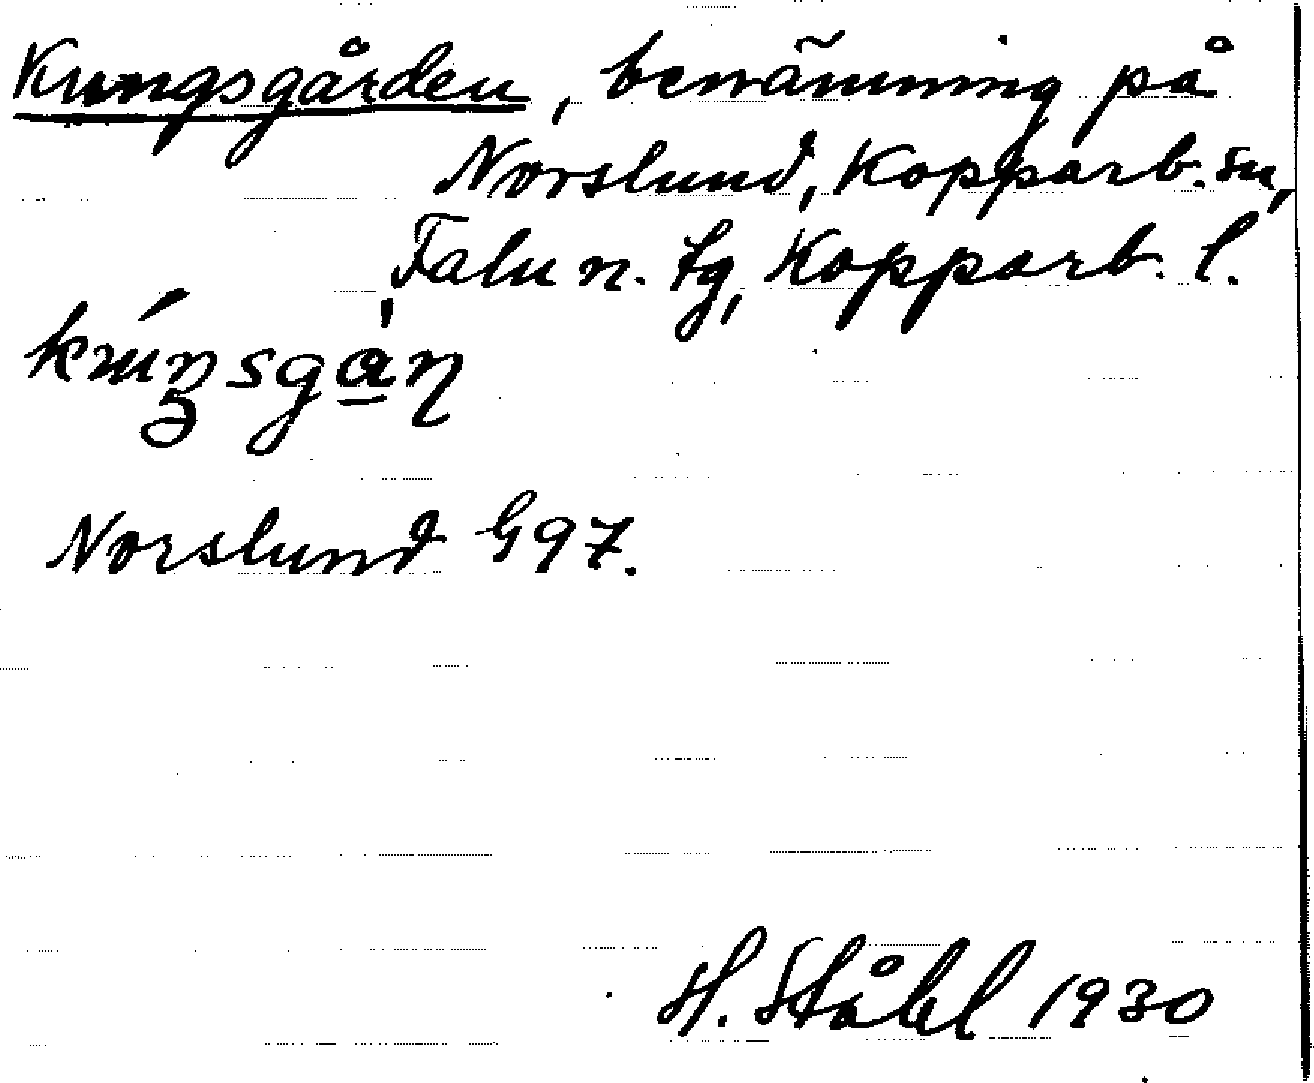 Kungsgården, benämning på
Norslund, Kopparb. sn,
Falu n. tg, Kopparb. l.
Norslund G 97.
H. Ståhl 1930